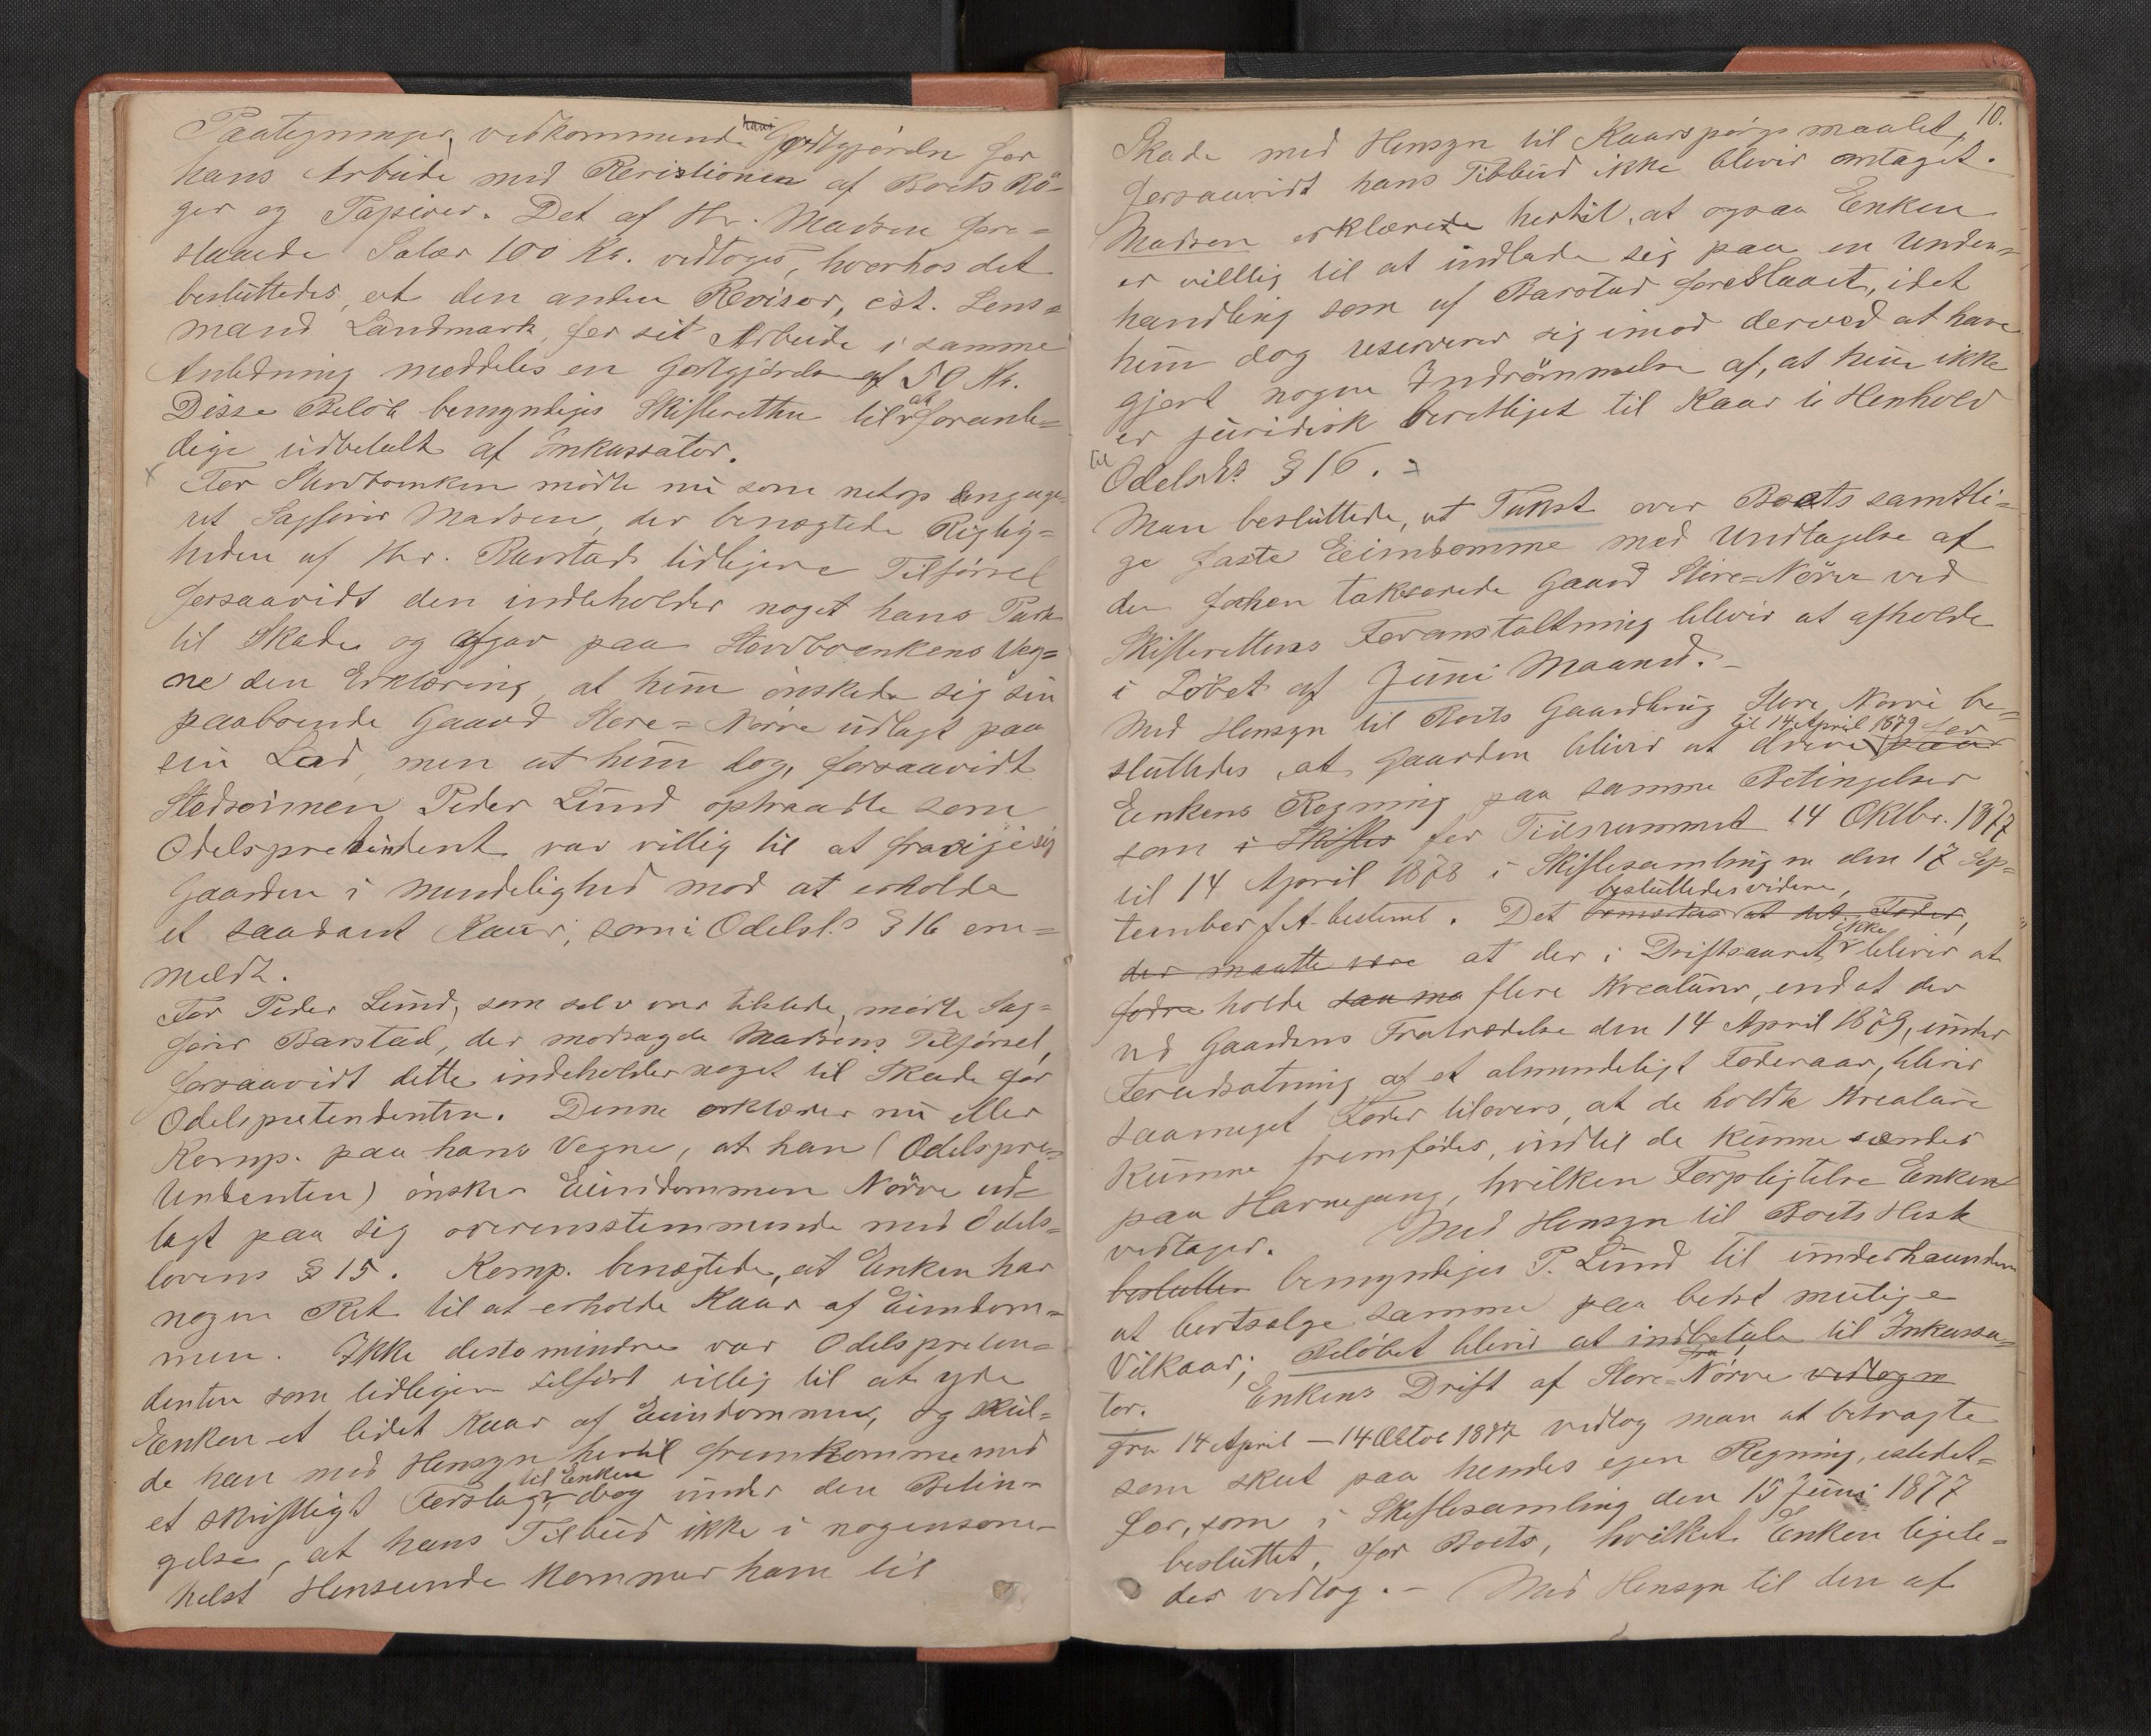 Paategninger, vedkommende hans Godtgjørelse for
hans Arbeide med Revisionen af Boets Bø-
ger og Papirer. Det af Hr. Madsen fore=
slaaede Salær 100 Kr. vedtoges, hvorhos det
besluttedes, at den anden Revisor, cst. Lens=
mand Landmark, for sit Arbeide i samme
Anledning meddeles en Godtgjørelse af 50 Kr.
Disse Beløb bemyndiges Skifteretten til at foranle=
dige udbetalt af Inkassator.
x For Stervboenken mødte nu som netop engage=
ret Sagfører Madsen, der benægtede Rigtig=
heden af Hr. Barstads tidligere Tilførsel
forsaavidt den indeholder noget hans Part
til Skade og afgav paa Stervboenkens Veg=
ne den Erklæring, at hun ønskede sig sin
paaboende Gaard Store=Nørve udlagt paa
sin Lod, men at hun dog, forsaavidt
Stedsønnen Peder Lund optraadte som
Odelspretendent var villig til at fravige sig
Gaarden i Mindelighed mod at erholde
et saadant Kaar, som i Odelsl.s § 16 om=
meldt.
For Peder Lund, som selv var tilstede, mødte Sag=
fører Barstad, der modsagde Madsens Tilførsel,
forsaavidt dette indeholder noget til Skade for
Odelspretendenten. Denne erklærer nu eller
Komp. paa hans Vegne, at han (Odelspre=
tendenten) ønsker Eiendommen Nørve ud=
lagt paa sig overensstemmende med Odels=
lovens § 15. Komp. benægtede, at Enken har
nogen Ret til at erholde Kaar af Eiendom=
men. Ikke destomindre var Odelspreten=
denten som tidligere tilført villig til at yde
Enken et lidet Kaar af Eiendommen, og skul=
de han med Hensyn hertil fremkomme med
et skriftligt Forslag til Enken dog under den Betin=
gelse, at hans Tilbud ikke i nogensom=
helst Henseende kommer ham til
10.
Skade med Hensyn til Kaarspørgsmaalet,
forsaavidt hans Tilbud ikke bliver antaget.
Madsen erklærede hertil, at ogsaa Enken
er villig til at indlade sig paa en Under=
handling som af Barstad foreslaaet, idet
hun dog reserverer sig imod derved at have
gjort nogen Indrømmelse af, at hun ikke
er juridisk berettiget til Kaar i Henhold
til Odelsl.s § 16.
Man besluttede, at Takst over Boets samtli=
ge faste Eiendomme med Undtagelse af
den forhen takserede Gaard Store=Nørve ved
Skifterettens Foranstaltning bliver at afholde
i Løbet af Juni Maaned.
Med Hensyn til Boets Gaardbrug Store Nørve be=
sluttedes, at Gaarden bliver at drive til 14 April 1879 for paa
Enkens Regning paa samme Betingelser
som i Skiftes for Tidsrummet 14 Oktbr. 1877
til 14 April 1878 i Skiftesamlingen den 17 Sep=
tember f. A. bestemt. Det besluttedes videre, bemærkes at det Foder,
der maatte være at der i Driftsaaret ikke bliver at
fodre holde saa ma flere Kreaturer, end at der
ved Gaardens Fratrædelse den 14 April 1879, under
Forudsætning af et almindeligt Foderaar, bliver
saameget Foder tilovers, at de holdte Kreature
kunne fremfødes, indtil de kunne sendes
paa Havnegang, hvilken Forpligtelse Enken
vedtager. Med Hensyn til Boets Hest
beslutter bemyndiges P. Lund til underhaanden
at bortsælge samme paa bedst mulige
Vilkaar; Beløbet bliver at indbetale til Inkassa=
tor. Enkens Drift af Store=Nørve fra vedtogen
fra 14 April — 14 Oktob 1877 vedtog man at betragte
som skeet paa hendes egen Regning, istedet=
for, som i Skiftesamling den 15 Juni 1877
besluttet, for Boets, hvilket Enken ligele=
des vedtog. – Med Hensyn til den af